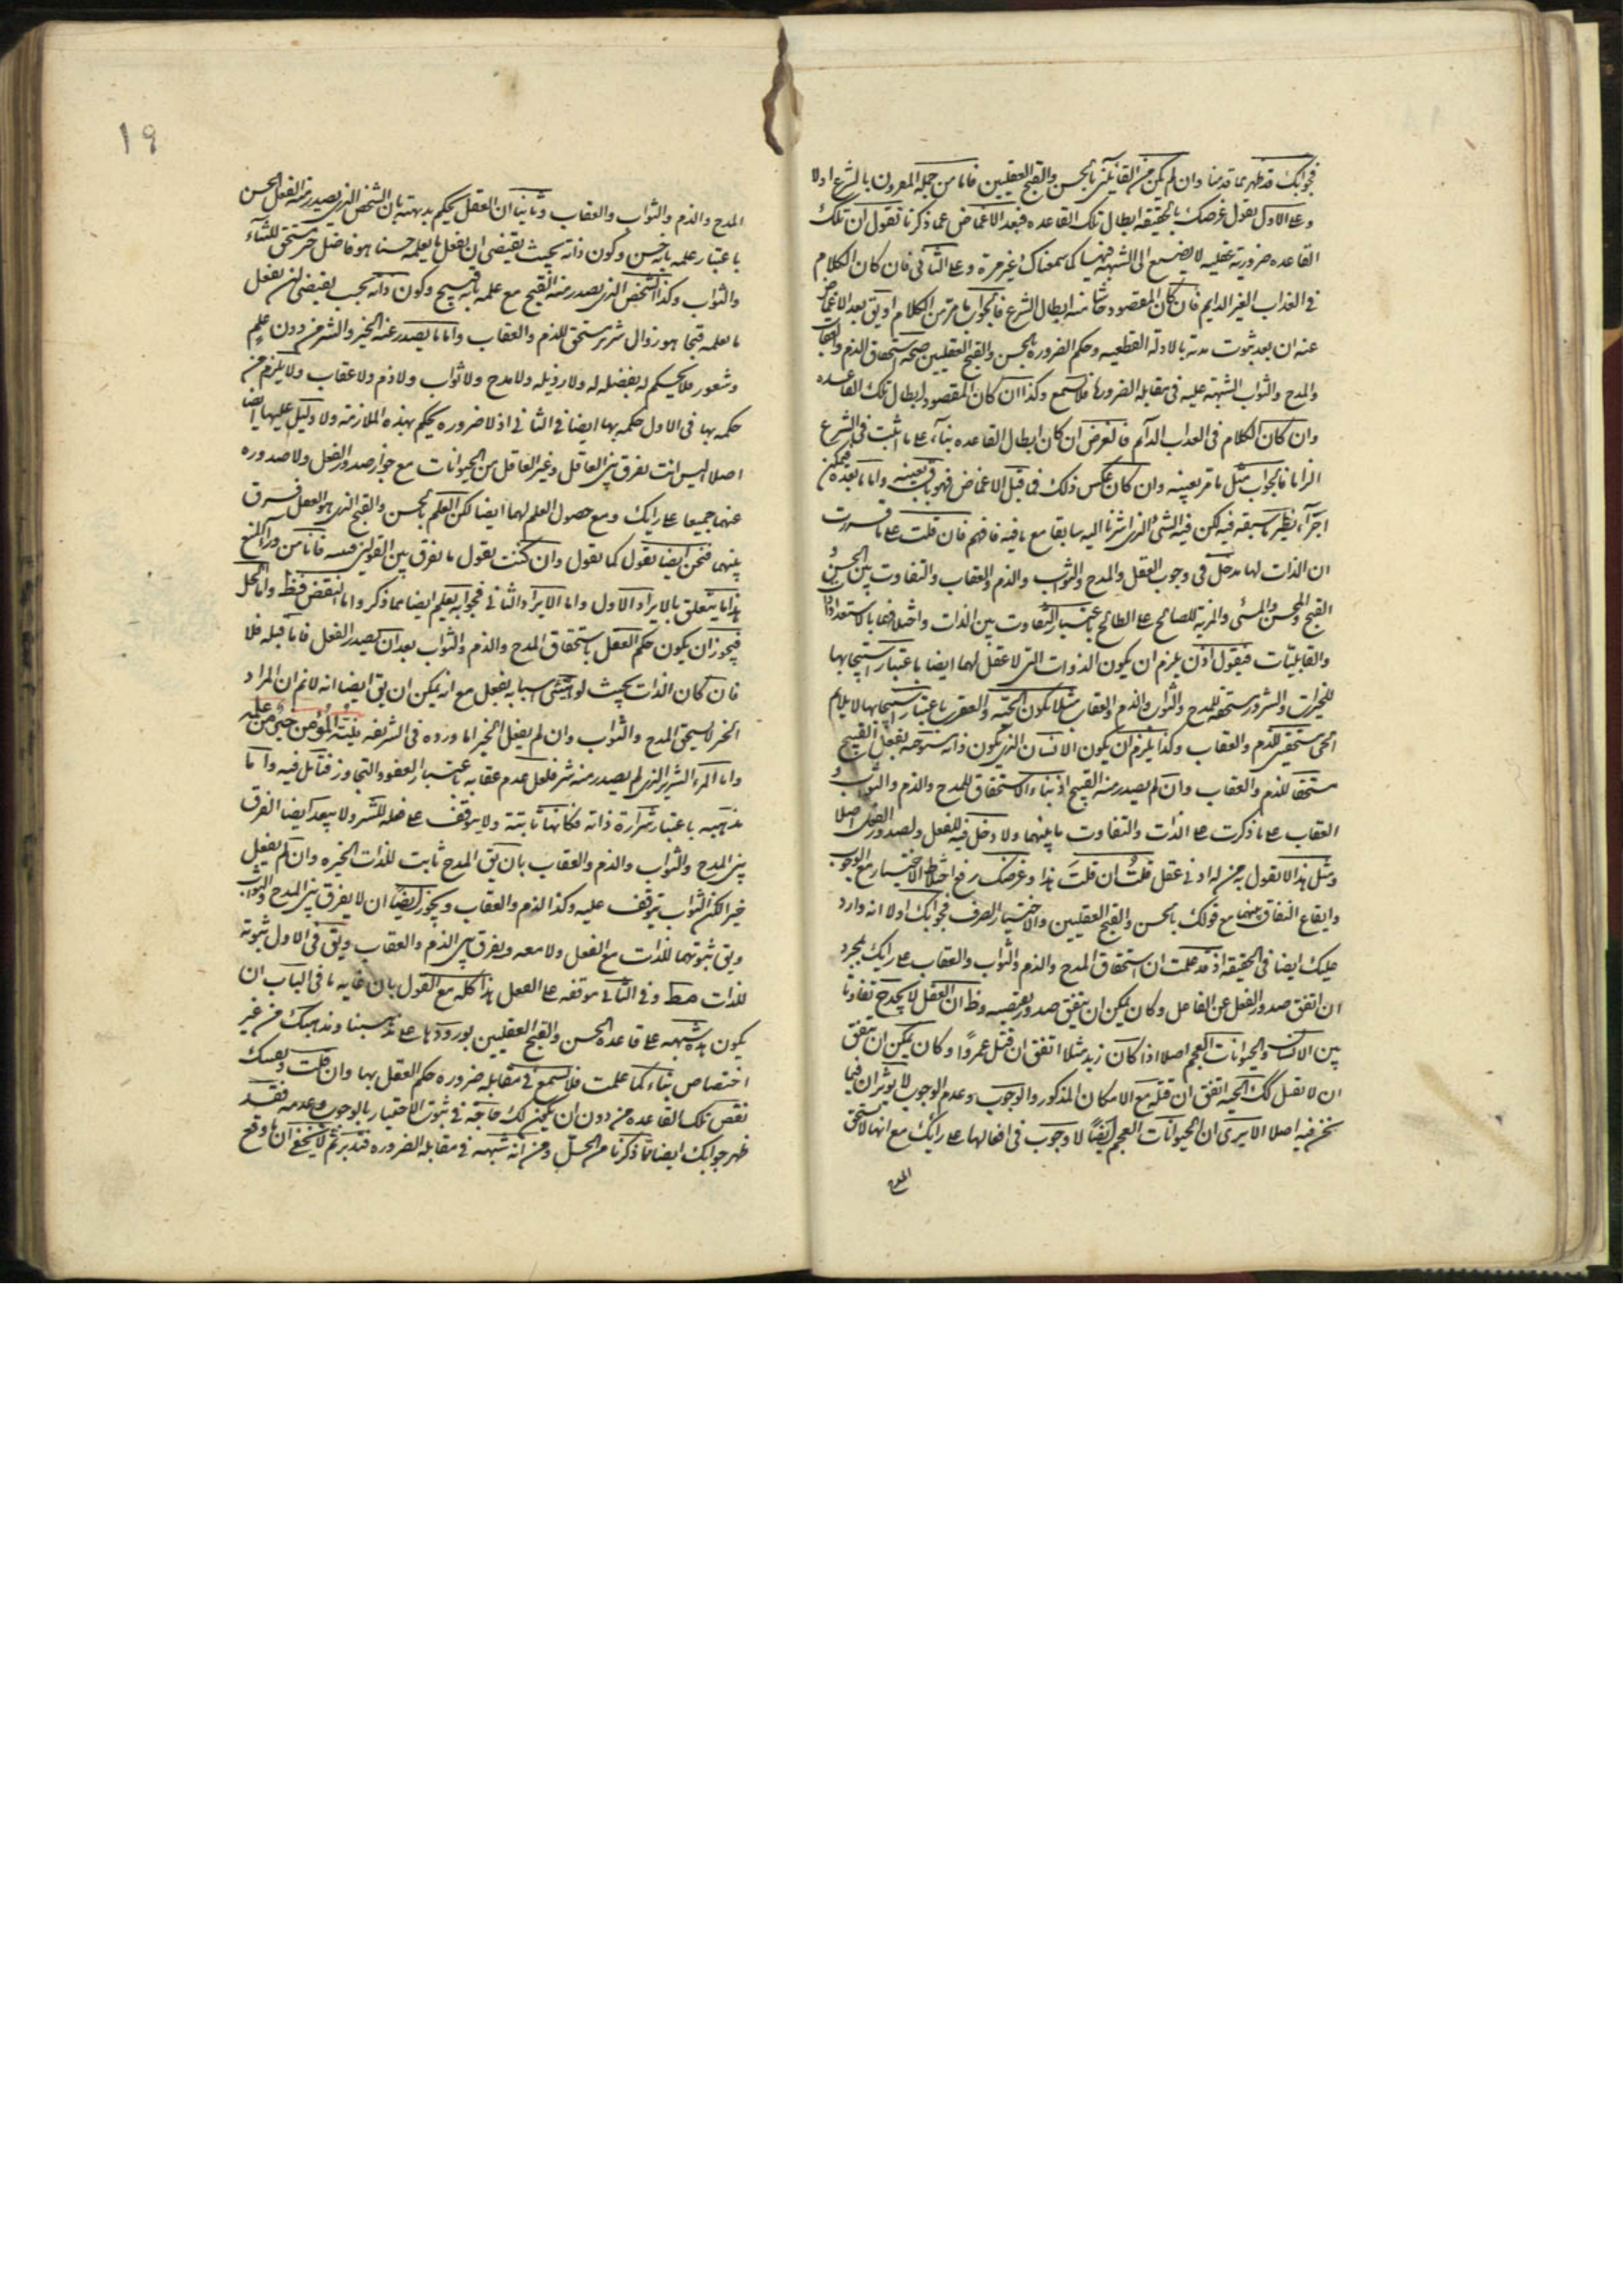 فجوابك قد ظهر مما قدمنا وان لم يكن من القائلين بالحسن والقبح العقليين فاما من جملة المعرون بالشرع اولا
وعلى الاول نقول غرضك بالحقيقة ابطال تلك القاعده فبعد الاغماض عما ذكرنا نقول ان تلك
القاعده ضرورية عقلية لا يصغى الى الشبهة فيها كما سمعناك غير مرة وعلى الثانى فان كان الكلام
فى العذاب الغير الدايم فان كان المقصود ابطال الشرع فالجواب ما مر من الكلام او يق بعد الاغماض
عنه ان بعد ثبوت مدته بالادلة القطعيه وحكم الضروره بالحسن والقبح العقليين صحة استحقاق الذم والعقاب
والمدح والثواب الشبهة عليه فى مقابلة الضرورة فلا تسمع وكذا ان كان المقصود ابطال تلك القاعده
وان كان الكلام فى العذاب الدائم فالغرض ان كان ابطال القاعده بناء على ما اثبت فى الشرع
الزاما فالجواب مثل ما مر بعينه وان كان عكس ذلك فما قبل الاغماض فهو باق بعينه واما ما بعده فيمكن
اجراء نظير ما سبقه فيه لكن فيه الشئ الذى اشرنا اليه سابقا مع ما فيه فافهم فان قلت على ما قررت
ان الذات لها مدخل فى وجوب الفعل والمدح والثواب والذم والعقاب والتفاوت بين الحسن و
القبح والمحسن والمسئ والمزية للصالح على الطالح باعتبار التفاوت بين الذات واختلافها بالاستعدادات
والقابليات فنقول اذن يلزم ان يكون الذوات التى لا عقل لها ايضا باعتبار استيجابها
للخيرات والشرور مستحقة للمدح والثواب والذم والعقاب مثلا يكون الحية والعقرب باعتبار استيجابها لايلام
الحى مستحقين للذم والعقاب وكذا يلزم ان يكون الانسان الذى يكون ذاته مستوجبه لفعل القبيح
مستحقا للذم والعقاب وان لم يصدر منه القبيح اذ بناء الاستحقاق للمدح والذم والثواب و
العقاب على ما ذكرت على الذات والتفاوت ما بينهما ولا دخل فيه للفعل ولصدور الفعل اصلا
ومثل هذا لا يقول به من له ادنى عقل قلت ان قلت هذا وغرضك رفع اختلاط الاختيار مع الوجوب
وايقاع النفاق بينهما مع قولك بالحسن والقبح العقليين والاختيار الصرف فجوابك اولا انه وارد
عليك ايضا فى الحقيقة اذ قد علمت ان استحقاق المدح والذم والثواب والعقاب على رايك بمجرد
ان اتفق صدور الفعل عن الفاعل وكان يمكن ان يتفق صدور نقيضه وظ ان العقل لا يجد ح تفاوتا
بين الانسان والحيوانات العجم اصلا اذا كان زيد مثلا اتفق ان قتل عمروا وكان يمكن ان يتفق
ان لا يقتل كك الحية اتفق ان قتله مع الامكان المذكور والوجوب وعدم الوجوب لا يؤثران فيما
نحن فيه اصلا الا يرى ان الحيوانات العجم ايضا لا وجوب فى افعالها على رايك مع انها لا تستحق
المدح
١٩
المدح والذم والثواب والعقاب وثانيا ان العقل يحكم بديهة بان الشخص الذى يصدر منه الفعل الحسن
باعتبار علمه بانه حسن وكون ذاته بحيث يقتضى ان يفعل ما يعلمه حسنا هو فاضل خير مستحق للثناء
والثواب وكذا الشخص الذى يصدر منه القبيح مع علمه بانه قبيح وكون ذاته بحيث يقتضى لان يفعل
ما يعلمه قبحا هو رذال شرير مستحق للذم والعقاب واما ما يصدر عنه الخير والشر من دون علم
وشعور فلا يحكم له بفضيله له ولا رذيله ولا مدح ولا ثواب ولا ذم ولا عقاب ولا يلزم من
حكمه بها فى الاول حكمه بها ايضا فى الثانى اذ لا ضروره يحكم بهذه الملازمة ولا دليل عليها ايضا
اصلا اليس انت تفرق بين العاقل وغير العاقل من الحيوانات مع جواز صدور الفعل ولا صدوره
عنهما جميعا على رايك ومع حصول العلم لهما ايضا لكن العلم بالحسن والقبح الذى هو العقل فرق
بينهما فنحن ايضا نقول كما نقول وان كنت تقول ما نفرق بين القولين فانا من وراء المنع
هذا ما يتعلق بالايراد الاول واما الايراد الثانى فجوابه يعلم ايضا مما ذكر واما النقض فظ واما الحل
فيجوز ان يكون حكم العقل باستحقاق المدح والذم والثواب بعد ان يصدر الفعل فاما قبله فلا
فان كان الذات بحيث لو تمشى اسبابه يفعل مع انه يمكن ان يق ايضا انه لا نم ان المراد
الخير لا يستحق المدح والثواب وان لم يفعل الخير اما وروده فى الشرع فنية المؤمن خير من عمله
واما المرء الشرير الذى لم يصدر منه شر فلعل عدم عقابه باعتبار العفو والتجاوز فتامل فيه واما
مذهبيه باعتبار شرارة ذاته فكانها ثابتة ولا يتوقف على فعله للشر ولا يبعد ايضا الفرق
بين المدح والثواب والذم والعقاب بان يق المدح ثابت للذات الخيره وان لم يفعل
خيرا لكن الثواب يتوقف عليه وكذا الذم والعقاب ويجوز ايضا ان لا يفرق بين المدح والثواب
ويق ثبوتهما للذات مع الفعل ولا معه ويفرق بين الذم والعقاب ويق فى الاول ثبوته
للذات فقط وفى الثانى توقفه على الفعل هذا كله مع القول بان غايه ما فى الباب ان
يكون هذه شبهه على قاعده الحسن والقبح العقليين بورودها على مذهبنا ومذهبك من غير
اختصاص بناء كما علمت فلا تسمع فى مقابله ضروره حكم العقل بها وان قلت
نقض تلك القاعده من دون ان يكون لك حاجة فى ثبوت الاختيار بالوجوب وعدمه فقد
ظهر جوابك ايضا مما ذكرنا من الحل ومن انه شبهه فى مقابله الضروره فتدبر ثم لا يخفى ان ما وقع